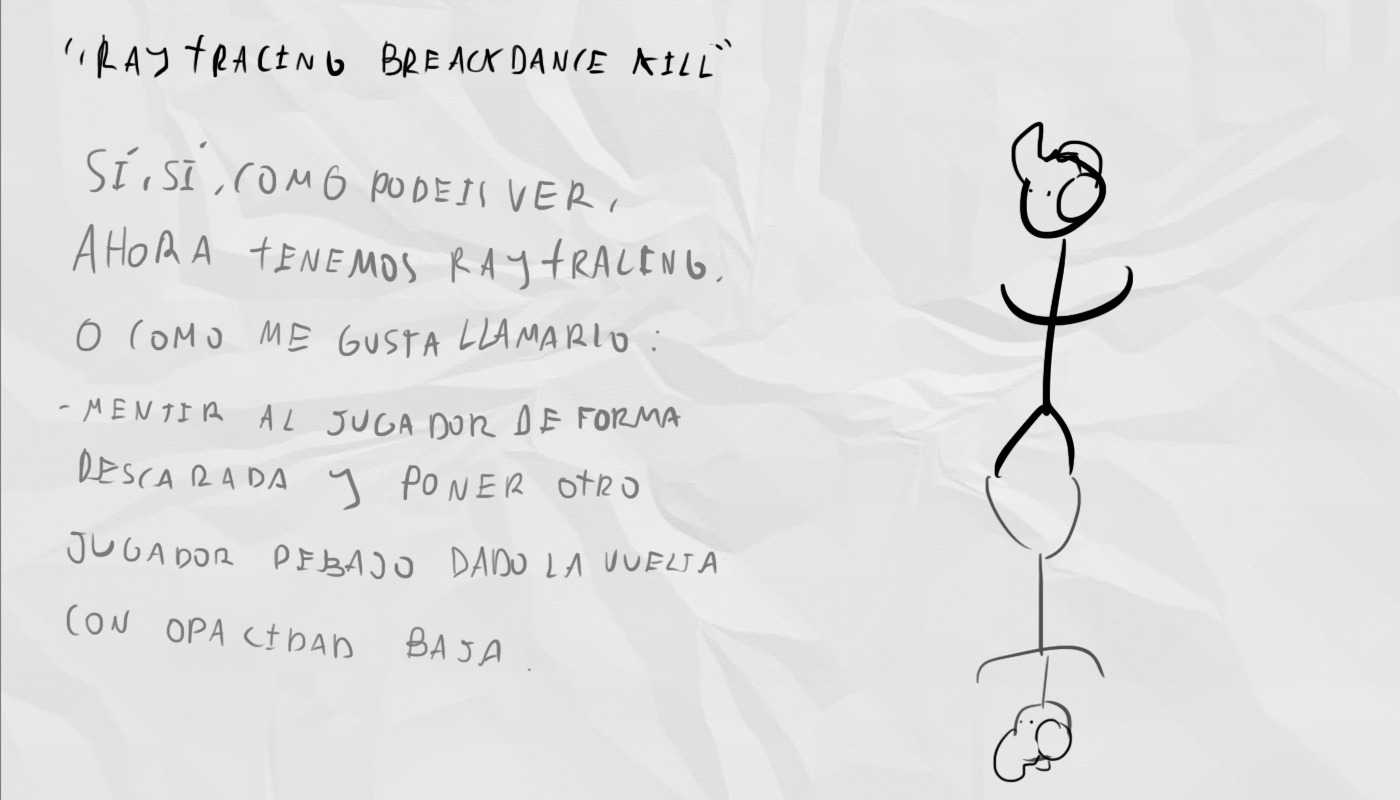 "RAYTRACING BREACKDANCE KILL"
SÍ, SÍ, COMO PODEIS VER,
AHORA TENEMOS RAYTRACING.
O COMO ME GUSTA LLAMARLO:
- MENTIR AL JUGADOR DE FORMA
DESCARADA Y PONER OTRO
JUGADOR DEBAJO DADO LA VUELTA
CON OPACIDAD BAJA.